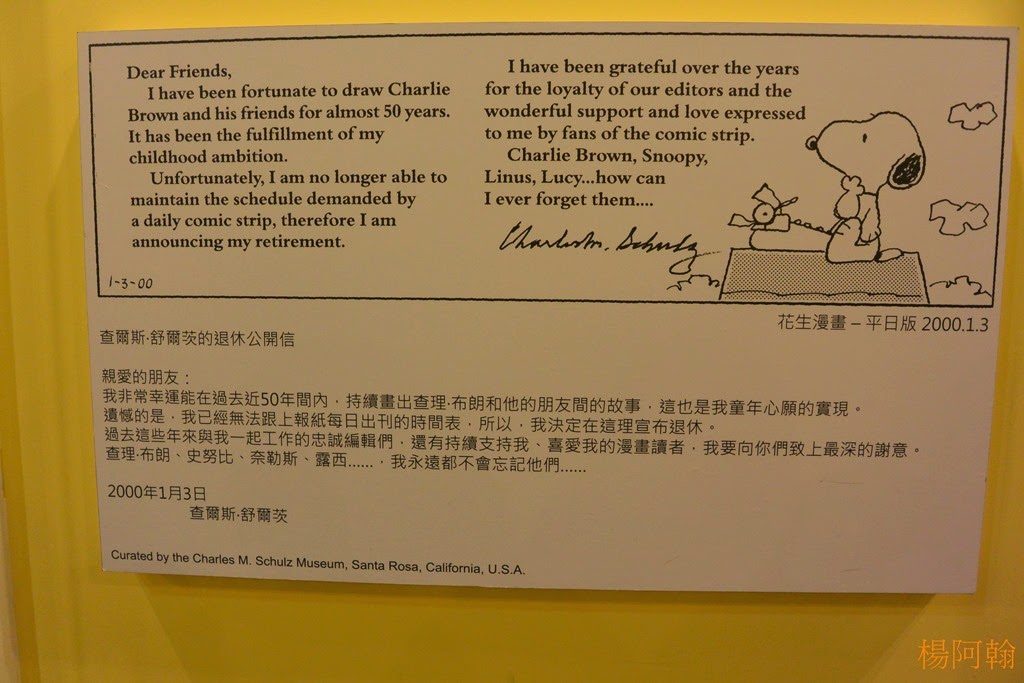 Dear Friends,
I have been fortunate to draw Charlie
Brown and his friends for almost 50 years.
It has been the fulfillment of my
childhood ambition.
Unfortunately, I am no longer able to
maintain the schedule demanded by
a daily comic strip, therefore I am
announcing my retirement.
1-3-00
I have been grateful over the years
for the loyalty of our editors and the
wonderful support and love expressed
to me by fans of the comic strip.
Charlie Brown, Snoopy,
Linus, Lucy...how can
I ever forget them....
Charles M. Schulz
花生漫畫 – 平日版 2000.1.3
查爾斯·舒爾茨的退休公開信
親愛的朋友：
我非常幸運能在過去近50年間內，持續畫出查理·布朗和他的朋友間的故事，這也是我童年心願的實現。
遺憾的是，我已經無法跟上報紙每日出刊的時間表，所以，我決定在這裡宣布退休。
過去這些年來與我一起工作的忠誠編輯們，還有持續支持我、喜愛我的漫畫讀者，我要向你們致上最深的謝意。
查理·布朗、史努比、奈勒斯、露西......，我永遠都不會忘記他們......
2000年1月3日
查爾斯·舒爾茨
Curated by the Charles M. Schulz Museum, Santa Rosa, California, U.S.A.
楊阿翰